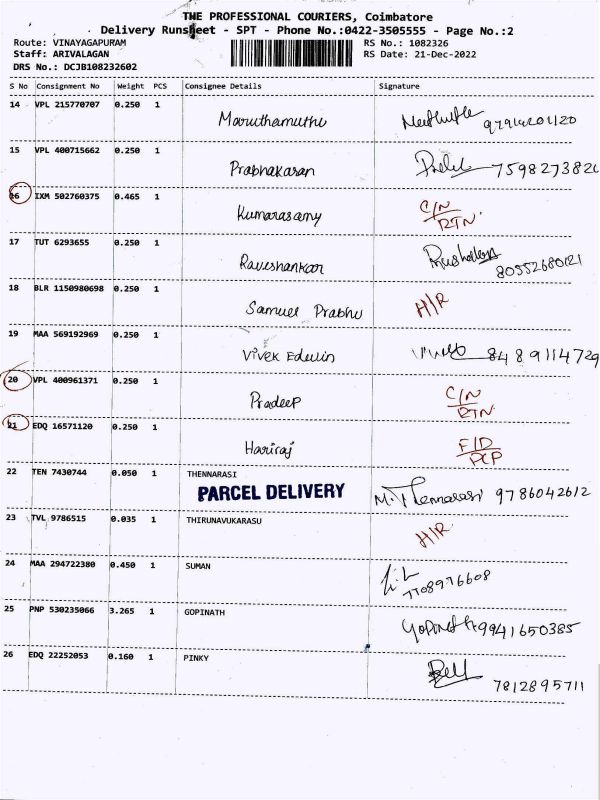 THE PROFESSIONAL COURIERS, Coimbatore
Delivery Runsheet - SPT - Phone No.:0422-3505555 - Page No.:2
Route: VINAYAGAPURAM RS No.: 1082326
Staff: ARIVALAGAN RS Date: 21-Dec-2022
DRS No.: DCJB108232602
S No Consignment No Weight PCS Consignee Details Signature
14 VPL 215770707 0.250 1 Maruthamuthu
15 VPL 400715662 0.250 1 Prabhakaran
16 IXM 502760375 0.465 1 Kumarasamy C/N RTN
17 TUT 6293655 0.250 1 Ravishankar
18 BLR 1150980698 0.250 1 Samuel Prabhu H/R
19 MAA 569192969 0.250 1 Vivek Edwin 8489114729
20 VPL 400961371 0.250 1 Pradeep C/N RTN
21 EDQ 16571120 0.250 1 Hariraj F/D PCP
22 TEN 7430744 0.050 1 THENNARASI
PARCEL DELIVERY M. Thennarasi 9786042612
23 TVL 9786515 0.035 1 THIRUNAVUKARASU H/R
24 MAA 294722380 0.450 1 SUMAN 7708976608
25 PNP 530235066 3.265 1 GOPINATH Gopinath 9941650385
26 EDQ 22252053 0.160 1 PINKY 7812895711